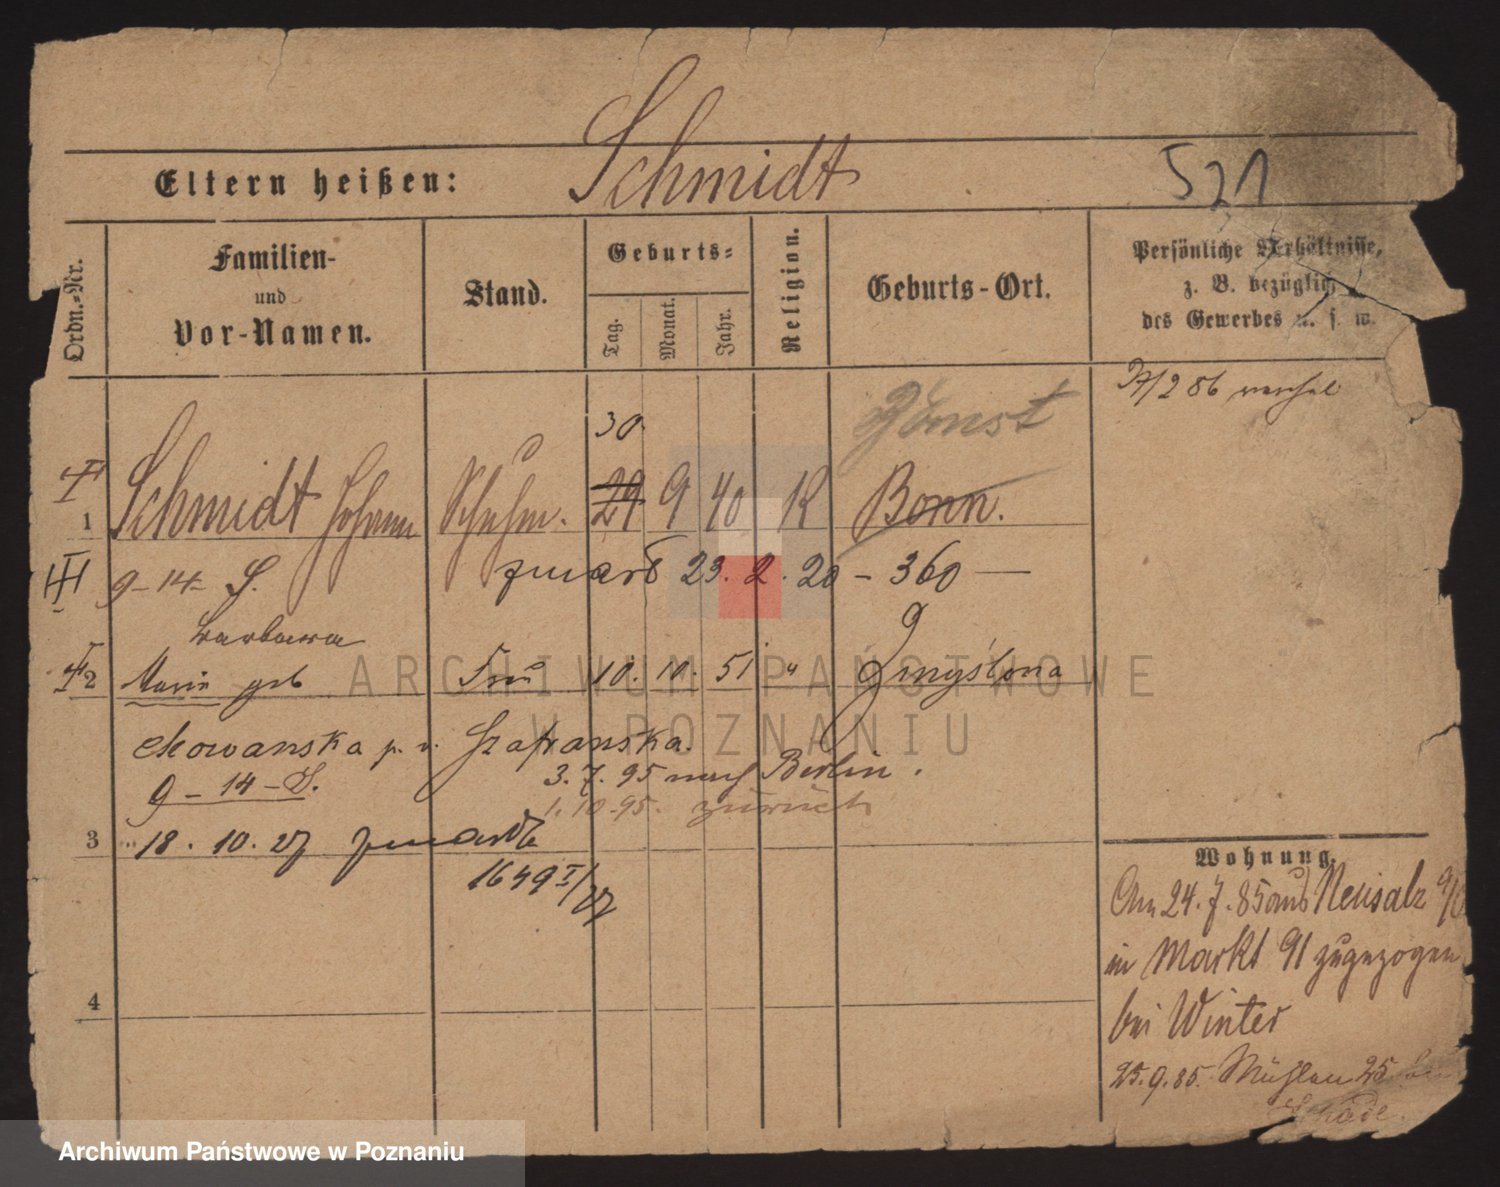 Schmidt
Eltern heißen:
521
Ordn.-Nr.
Familien-
und
Vor-Namen.
Stand.
Geburts-
Tag.
Monat.
Jahr.
Religion.
Geburts-Ort.
Persönliche Verhältnisse,
z. B. bezüglich
des Gewerbes u. s. w.
2 86
30
Bomst
1 Schmidt Johann Schuhm. 29 9 40 K Bonn.
9-14- S. zmarł 23. 2. 20 - 360 -
Barbara
2 Marie geb Frau 10. 10. 51 "
Szafranska.
9-14-S. 3. 7. 95 nach Berlin.
1. 10. 95. zurück
3 18. 10. 27 zmarła
1649 I/27
4
Wohnung.
Am 24. 7. 85 aus Neusalz
in Markt 91 zugezogen
bei Winter
25. 9. 85. Mühlen 25
ARCHIWUM PAŃSTWOWE
W POZNANIU
Archiwum Państwowe w Poznaniu